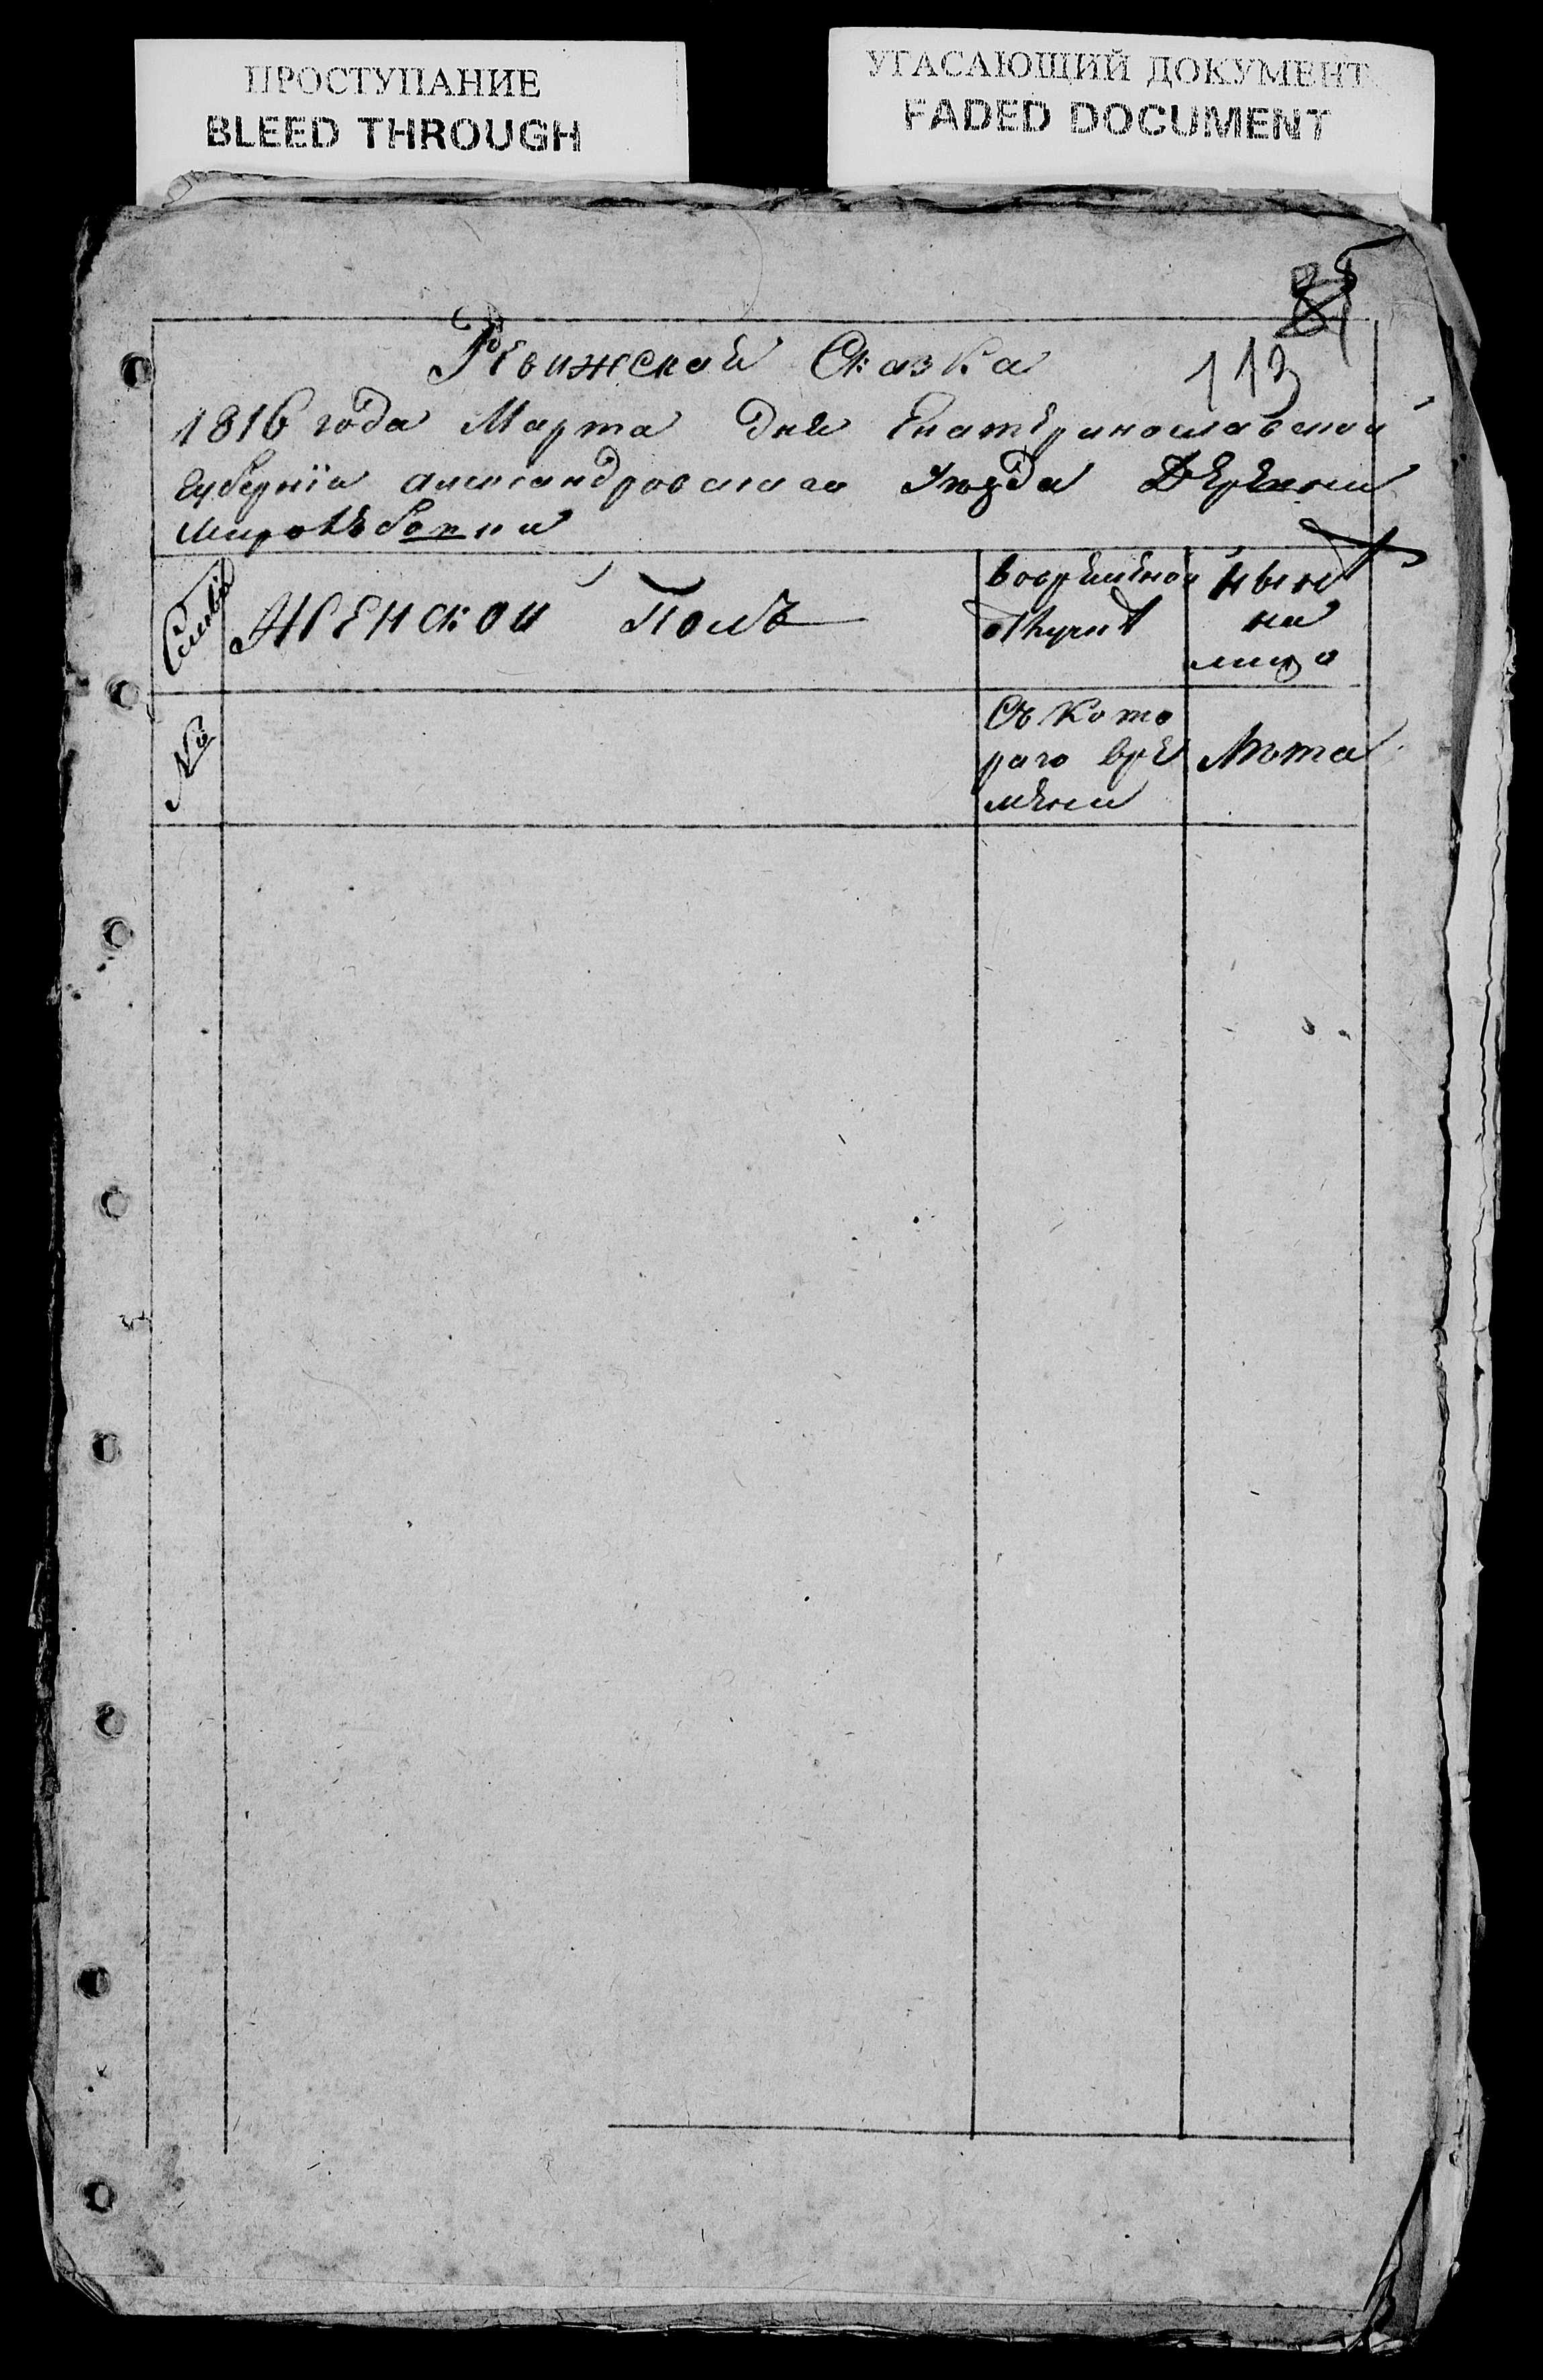 ПРОСТУПАНИЕ
BLEED THROUGH
УГАСАЮЩИЙ ДОКУМЕНТ
FADED DOCUMENT
113
Ревижская Сказка
1816 года Марта дня Екатеринославской
Губернiи александровскаго Уезда Деревни
Семья
Женской Полъ
вовременной
отлучке
ныне
на
лицо
№
Съ кото
раго вре
мени
Лета